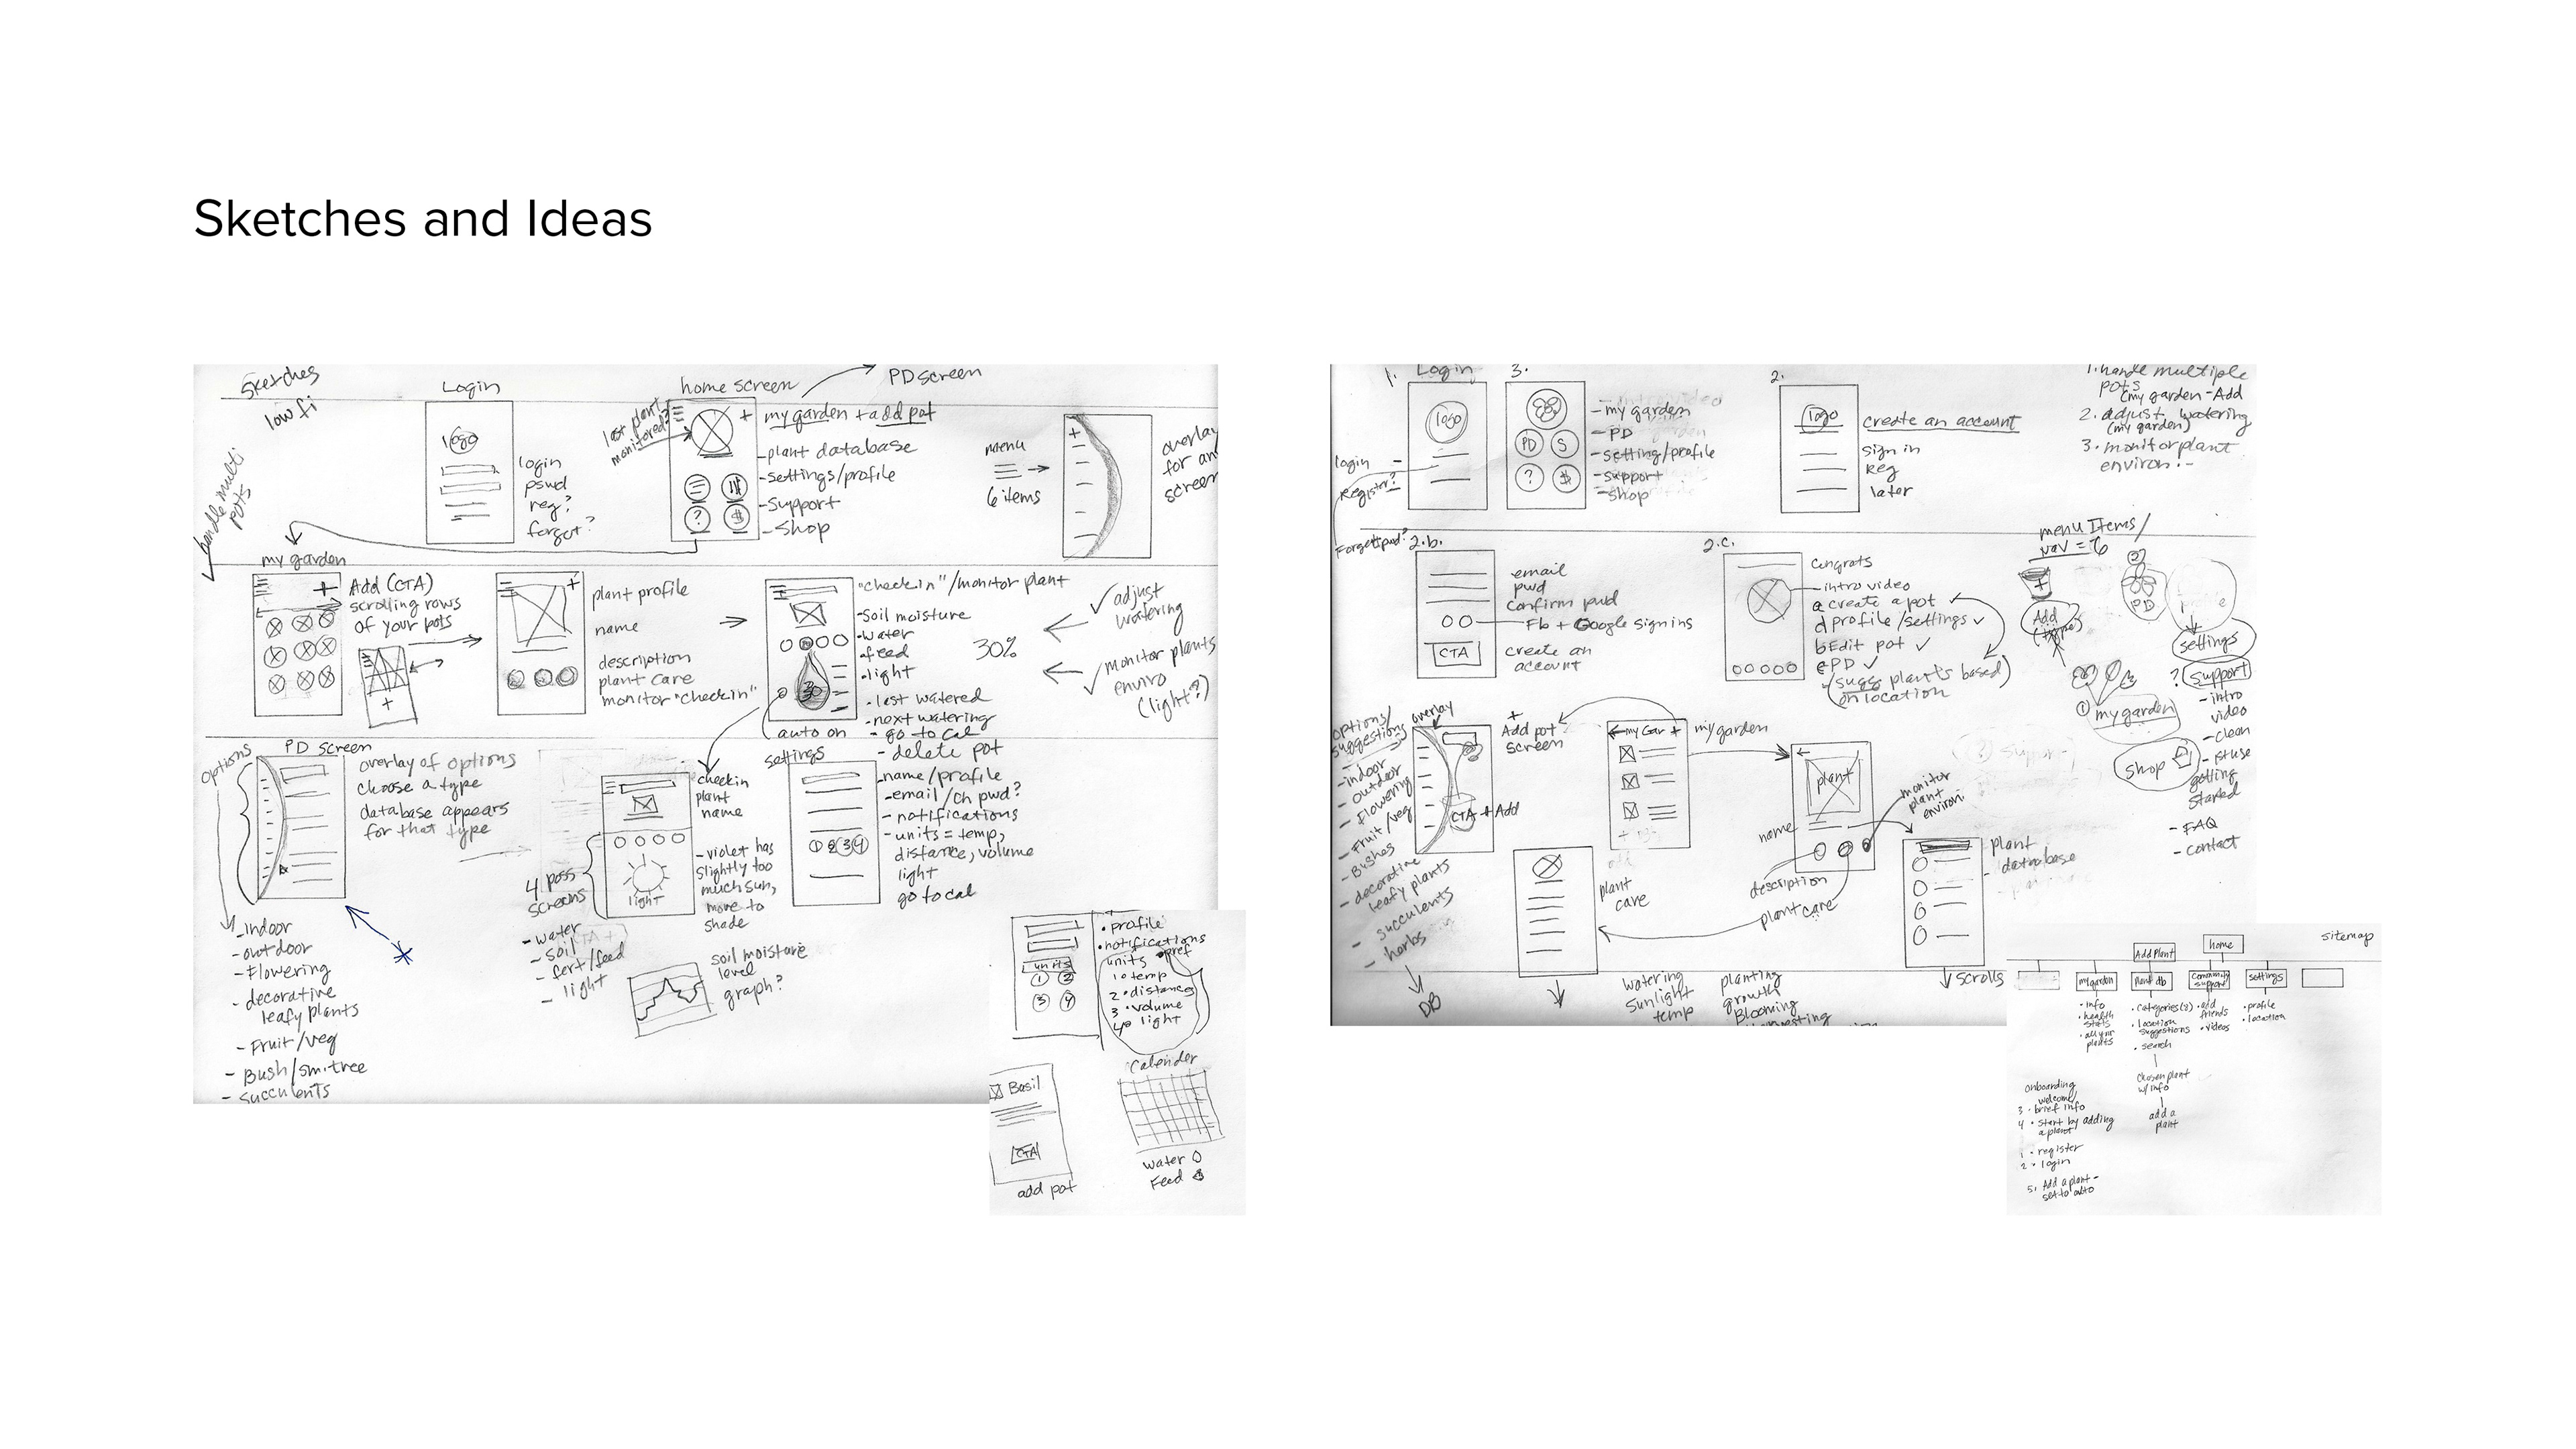 Sketches and Ideas
Sketches
low fi
handle multi
pots
Login
logo
login
pswd
reg?
forgot?
home screen
PD screen
last plant
monitored?
my garden + add pot
plant database
-settings/profile
-Support
-Shop
menu
6 items
overlay
for an
screen
my garden
Add (CTA)
scrolling rows
of your pots
plant profile
name
description
plant care
monitor "checkin"
"check in"/monitor plant
-Soil moisture
-water
-feed
-light
30%
30
-last watered
-next watering
- go to cal
- delete pot
auto on
adjust
watering
monitor plants
enviro
(light?)
options
PD screen
overlay of options
choose a type
database appears
for that type
-Indoor
-outdoor
-Flowering
- decorative
leafy plants
- Fruit/veg
- Bush/sm.tree
- succulents
checkin
plant
name
4 poss
screens
light
-violet has
slightly too
much sun,
move to
shade
- water
- soil
- fert/feed
- light
soil moisture
level
graph?
settings
-name/profile
-email/ch pwd?
- notifications
- units = temp,
distance, volume
light
go to cal
• profile
• notifications
pref
units
units
1• temp
2 • distance
3 • volume
4• light
1 2
3 4
Basil
CTA
add pot
Calender
water
Feed
1.
Login
logo
login
Register?
Forgot pwd?
3.
PD S
? $
- my garden
- PD
- setting/profile
- support
- shop
2.
logo
create an account
sign in
reg
later
1. handle multiple
pots
(my garden -Add
2. adjust watering
(my garden)
3. monitor plant
environ.-
2.b.
email
pwd
confirm pwd
Fb + Google sign ins
CTA
create an
account
2.c.
congrats
- intro video
a create a pot
d profile/settings
b Edit pot
c PD
(sugg plants based)
on location
menu Items/
nav = 6
Add
(type)
PD
settings
? support
- intro
video
- clean
- 1st use
getting
started
- FAQ
- contact
① my garden
shop
options/
suggestions
overlay
-indoor
- outdoor
- Flowering
- Fruit/veg
- Bushes
- decorative
leafy plants
- succulents
- herbs
DB
CTA + Add
+
Add pot
screen
my Gar +
my garden
plant
name
monitor
plant
environ
description
plant care
plant
care
plant
database
scrolls
watering
sunlight
temp
planting
growth
Blooming
sitemap
home
Add Plant
my garden
plant db
community
support
settings
• info
• health
stats
• all your
plants
• categories(8)
• location
suggestions
• search
• add
friends
• videos
• profile
• location
chosen plant
w/info
add a
plant
onboarding
welcome/
3 • brief info
4 • start by adding
a plant
1 • register
2 • login
5. Add a plant -
set to auto